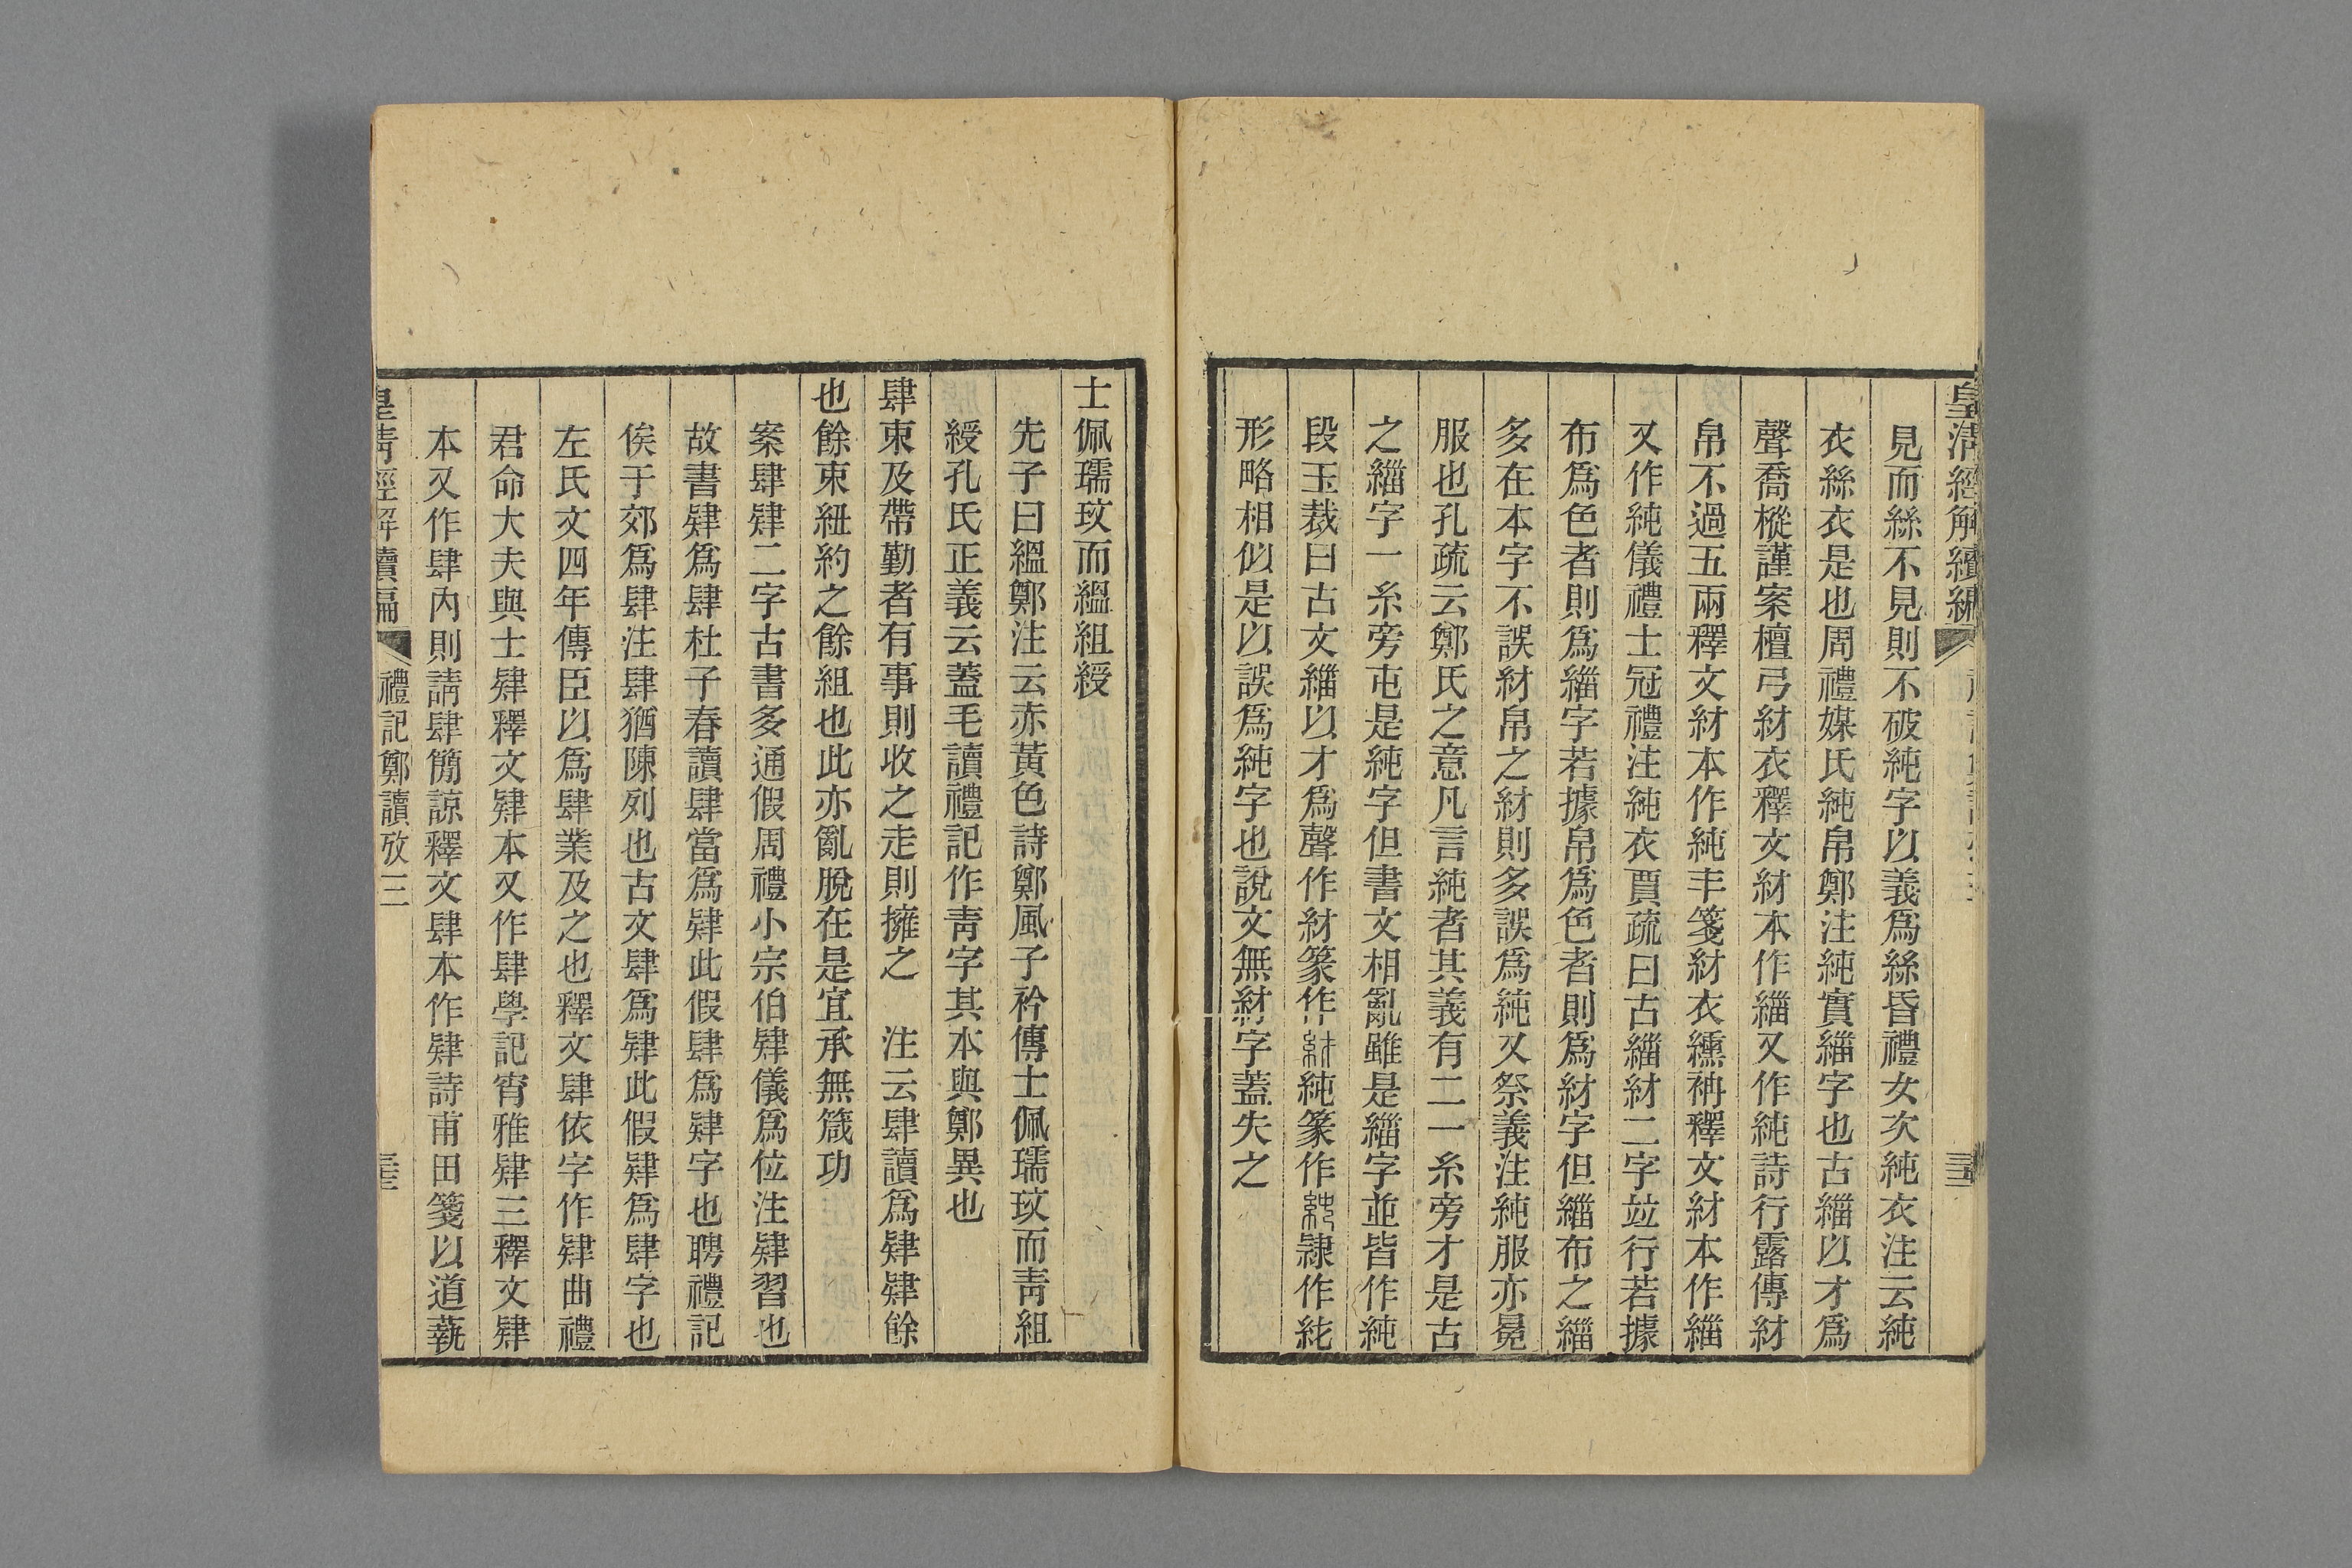 皇淸經解續編
見而絲不見則不破純字以義爲絲昏禮女次純衣注云純
衣絲衣是也周禮媒氏純帛鄭注純實緇字也古緇以才爲
聲喬樅謹案檀弓紂衣釋文紂本作緇又作純詩行露傳紂
帛不過五兩釋文紂本作純丰箋紂衣纁袡釋文紂本作緇
又作純儀禮士冠禮注純衣賈疏曰古緇紂二字竝行若據
布爲色者則爲緇字若據帛爲色者則爲紂字但緇布之緇
多在本字不誤紂帛之紂則多誤爲純又祭義注純服亦冕
服也孔疏云鄭氏之意凡言純者其義有二一糸旁才是古
之緇字一糸旁屯是純字但書文相亂雖是緇字並皆作純
段玉裁曰古文緇以才爲聲作紂篆作純篆作隷作純
形略相似是以誤爲純字也說文無紂字蓋失之
士佩瓀玟而縕組綬
先子曰縕鄭注云赤黃色詩鄭風子衿傳士佩瓀玟而靑組
綬孔氏正義云蓋毛讀禮記作靑字其本與鄭異也
肆束及帶勤者有事則收之走則擁之　注云肆讀爲肄肄餘
也餘束紐約之餘組也此亦亂脫在是宜承無箴功
案肆肄二字古書多通假周禮小宗伯肄儀爲位注肄習也
故書肄爲肆杜子春讀肆當爲肄此假肆爲肄字也聘禮記
俟于郊爲肆注肆猶陳列也古文肆爲肄此假肄爲肆字也
左氏文四年傳臣以爲肆業及之也釋文肆依字作肄曲禮
君命大夫與士肄釋文肄本又作肆學記宵雅肄三釋文肄
本又作肆內則請肆簡諒釋文肆本作肄詩甫田箋以道蓺
皇淸經解續編
禮記鄭讀攷三